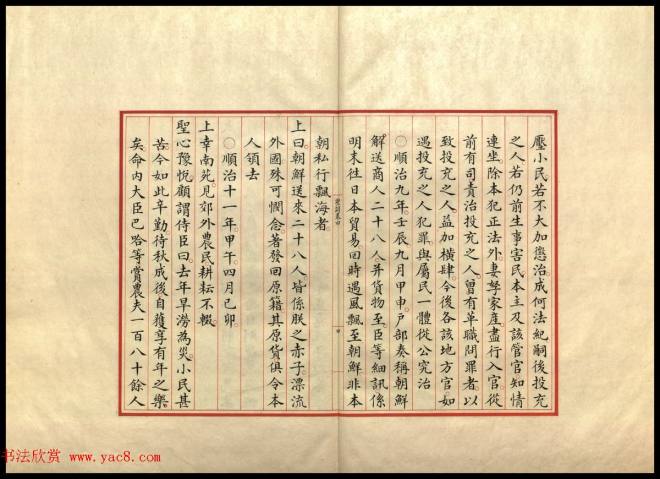 壓小民若不大加懲治成何法紀嗣後投充
之人若仍前生事害民本主及該管官知情
連坐除本犯正法外妻孥家產盡行入官從
前有司責治投充之人曾有革職問罪者以
致投充之人益加橫肆今後各該地方官如
遇投充之人犯罪與屬民一體從公究治
〇順治九年壬辰九月甲申戶部奏稱朝鮮
解送商人二十八人并貨物至臣等細訊係
明末往日本貿易回時遇風飄至朝鮮非本
朝私行飄海者
上曰朝鮮送來二十八人皆係朕之赤子漂流
外國殊可憫念著發回原籍其原貨俱令本
人領去
〇順治十一年甲午四月己卯
上幸南苑見郊外農民耕耘不輟
聖心豫悅顧謂侍臣曰去年旱澇為災小民甚
苦今如此辛勤待秋成後自獲享有年之樂
矣命內大臣巴哈等賞農夫一百八十餘人
书法欣赏 www.yac8.com